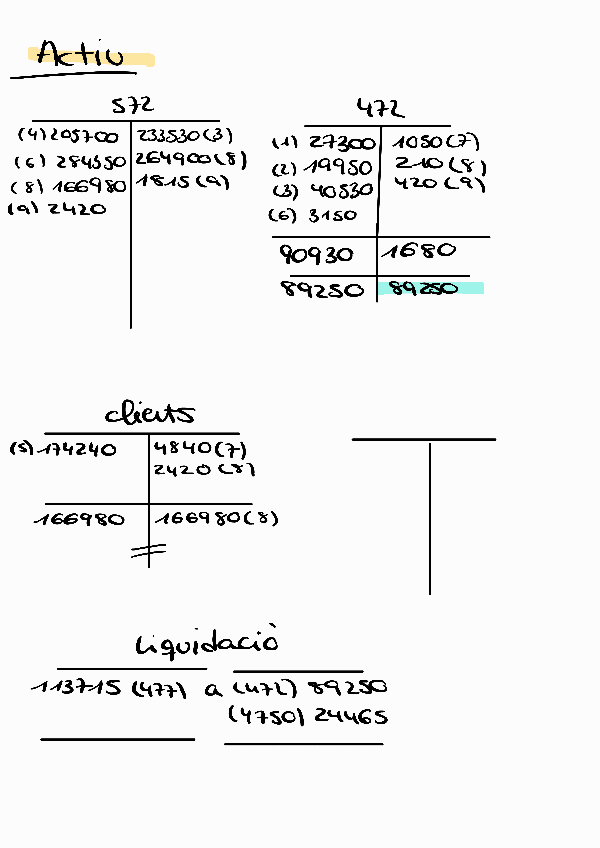 Actiu
572
(4) 205700 233530 (3)
(6) 284350 264900 (8)
(8) 166980 1815 (9)
(9) 2420
472
(1) 27300 1050 (7)
(2) 19950 210 (8)
(3) 40530 420 (9)
(6) 3150
90930 1680
89250 89250
clients
(5) 174240 4840 (7)
2420 (8)
166980 166980 (8)
Liquidació
113715 (477) a (472) 89250
(4750) 24465